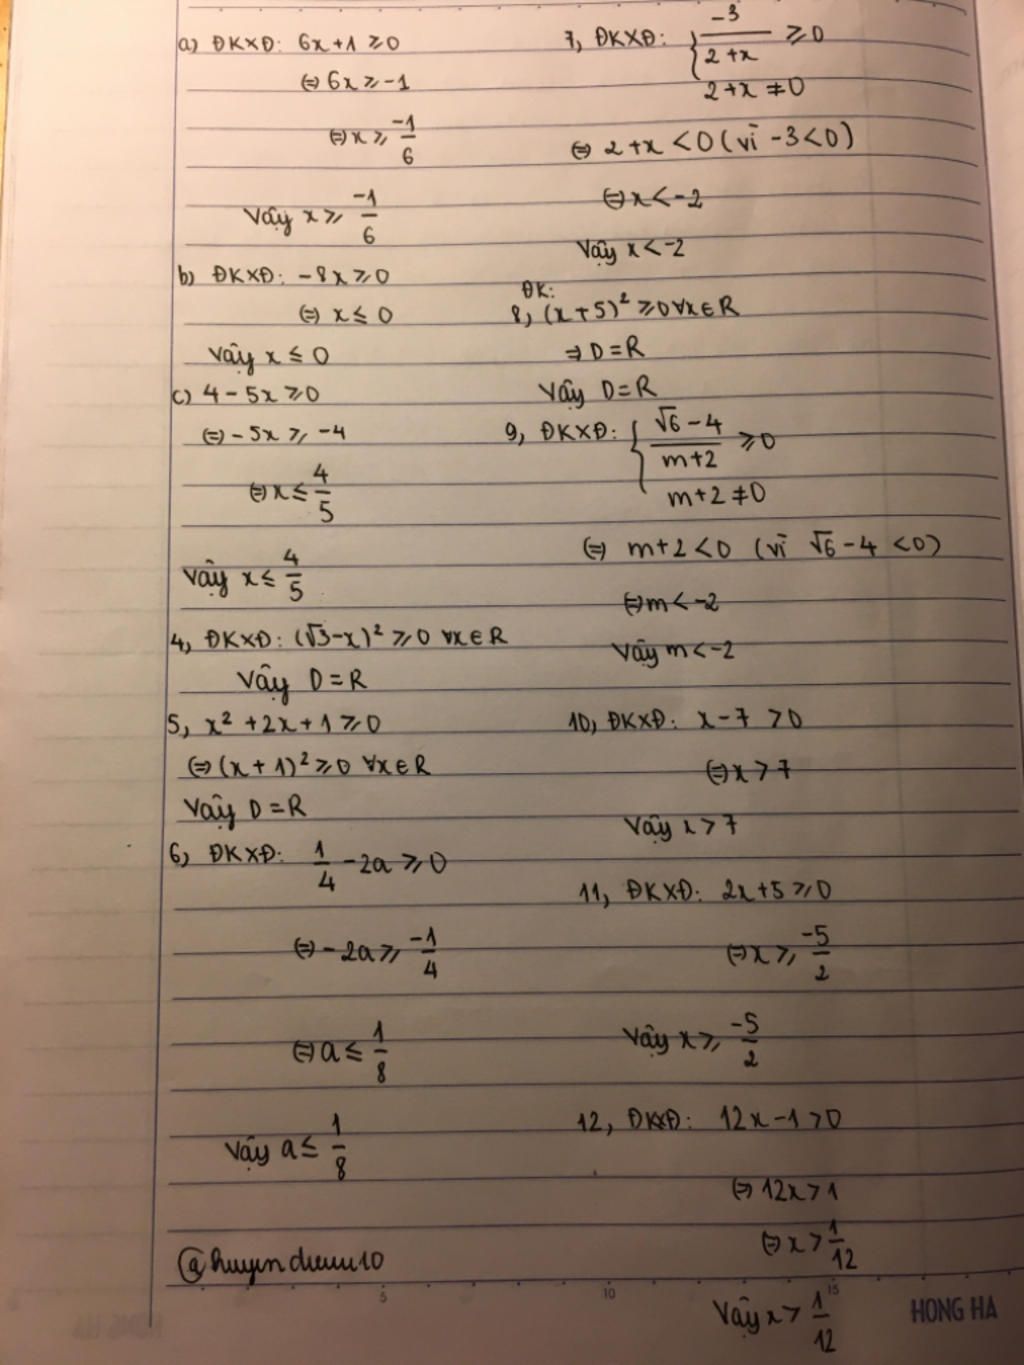 a) ĐKXĐ: 6x+1 ≥0
⇔ 6x ≥ -1
⇔ x ≥ -1/6
Vậy x ≥ -1/6
b) ĐKXĐ: -8x ≥0
⇔ x ≤ 0
Vậy x ≤ 0
c) 4 - 5x ≥0
⇔ -5x ≥ -4
⇔ x ≤ 4/5
Vậy x ≤ 4/5
4, ĐKXĐ: (√3-x)² ≥0 ∀x∈R
Vậy D=R
5, x² +2x+1 ≥0
⇔ (x+1)² ≥0 ∀x∈R
Vậy D=R
6, ĐKXĐ: 1/4 -2a ≥0
⇔ -2a ≥ -1/4
⇔ a ≤ 1/8
Vậy a ≤ 1/8
@huyendieuu10
7, ĐKXĐ: { -3/(2+x) ≥0
2+x ≠0
⇔ 2+x <0 (vì -3<0)
⇔ x < -2
Vậy x < -2
ĐK:
8, (x+5)² ≥0 ∀x∈R
⇒ D=R
Vậy D=R
9, ĐKXĐ: { (√6-4)/(m+2) ≥0
m+2 ≠0
⇔ m+2 <0 (vì √6-4 <0)
⇔ m < -2
Vậy m < -2
10, ĐKXĐ: x-7 >0
⇔ x > 7
Vậy x > 7
11, ĐKXĐ: 2x+5 ≥0
⇔ x ≥ -5/2
Vậy x ≥ -5/2
12, ĐKXĐ: 12x-1 >0
⇔ 12x > 1
⇔ x > 1/12
Vậy x > 1/12
5 10 15
HONG HA